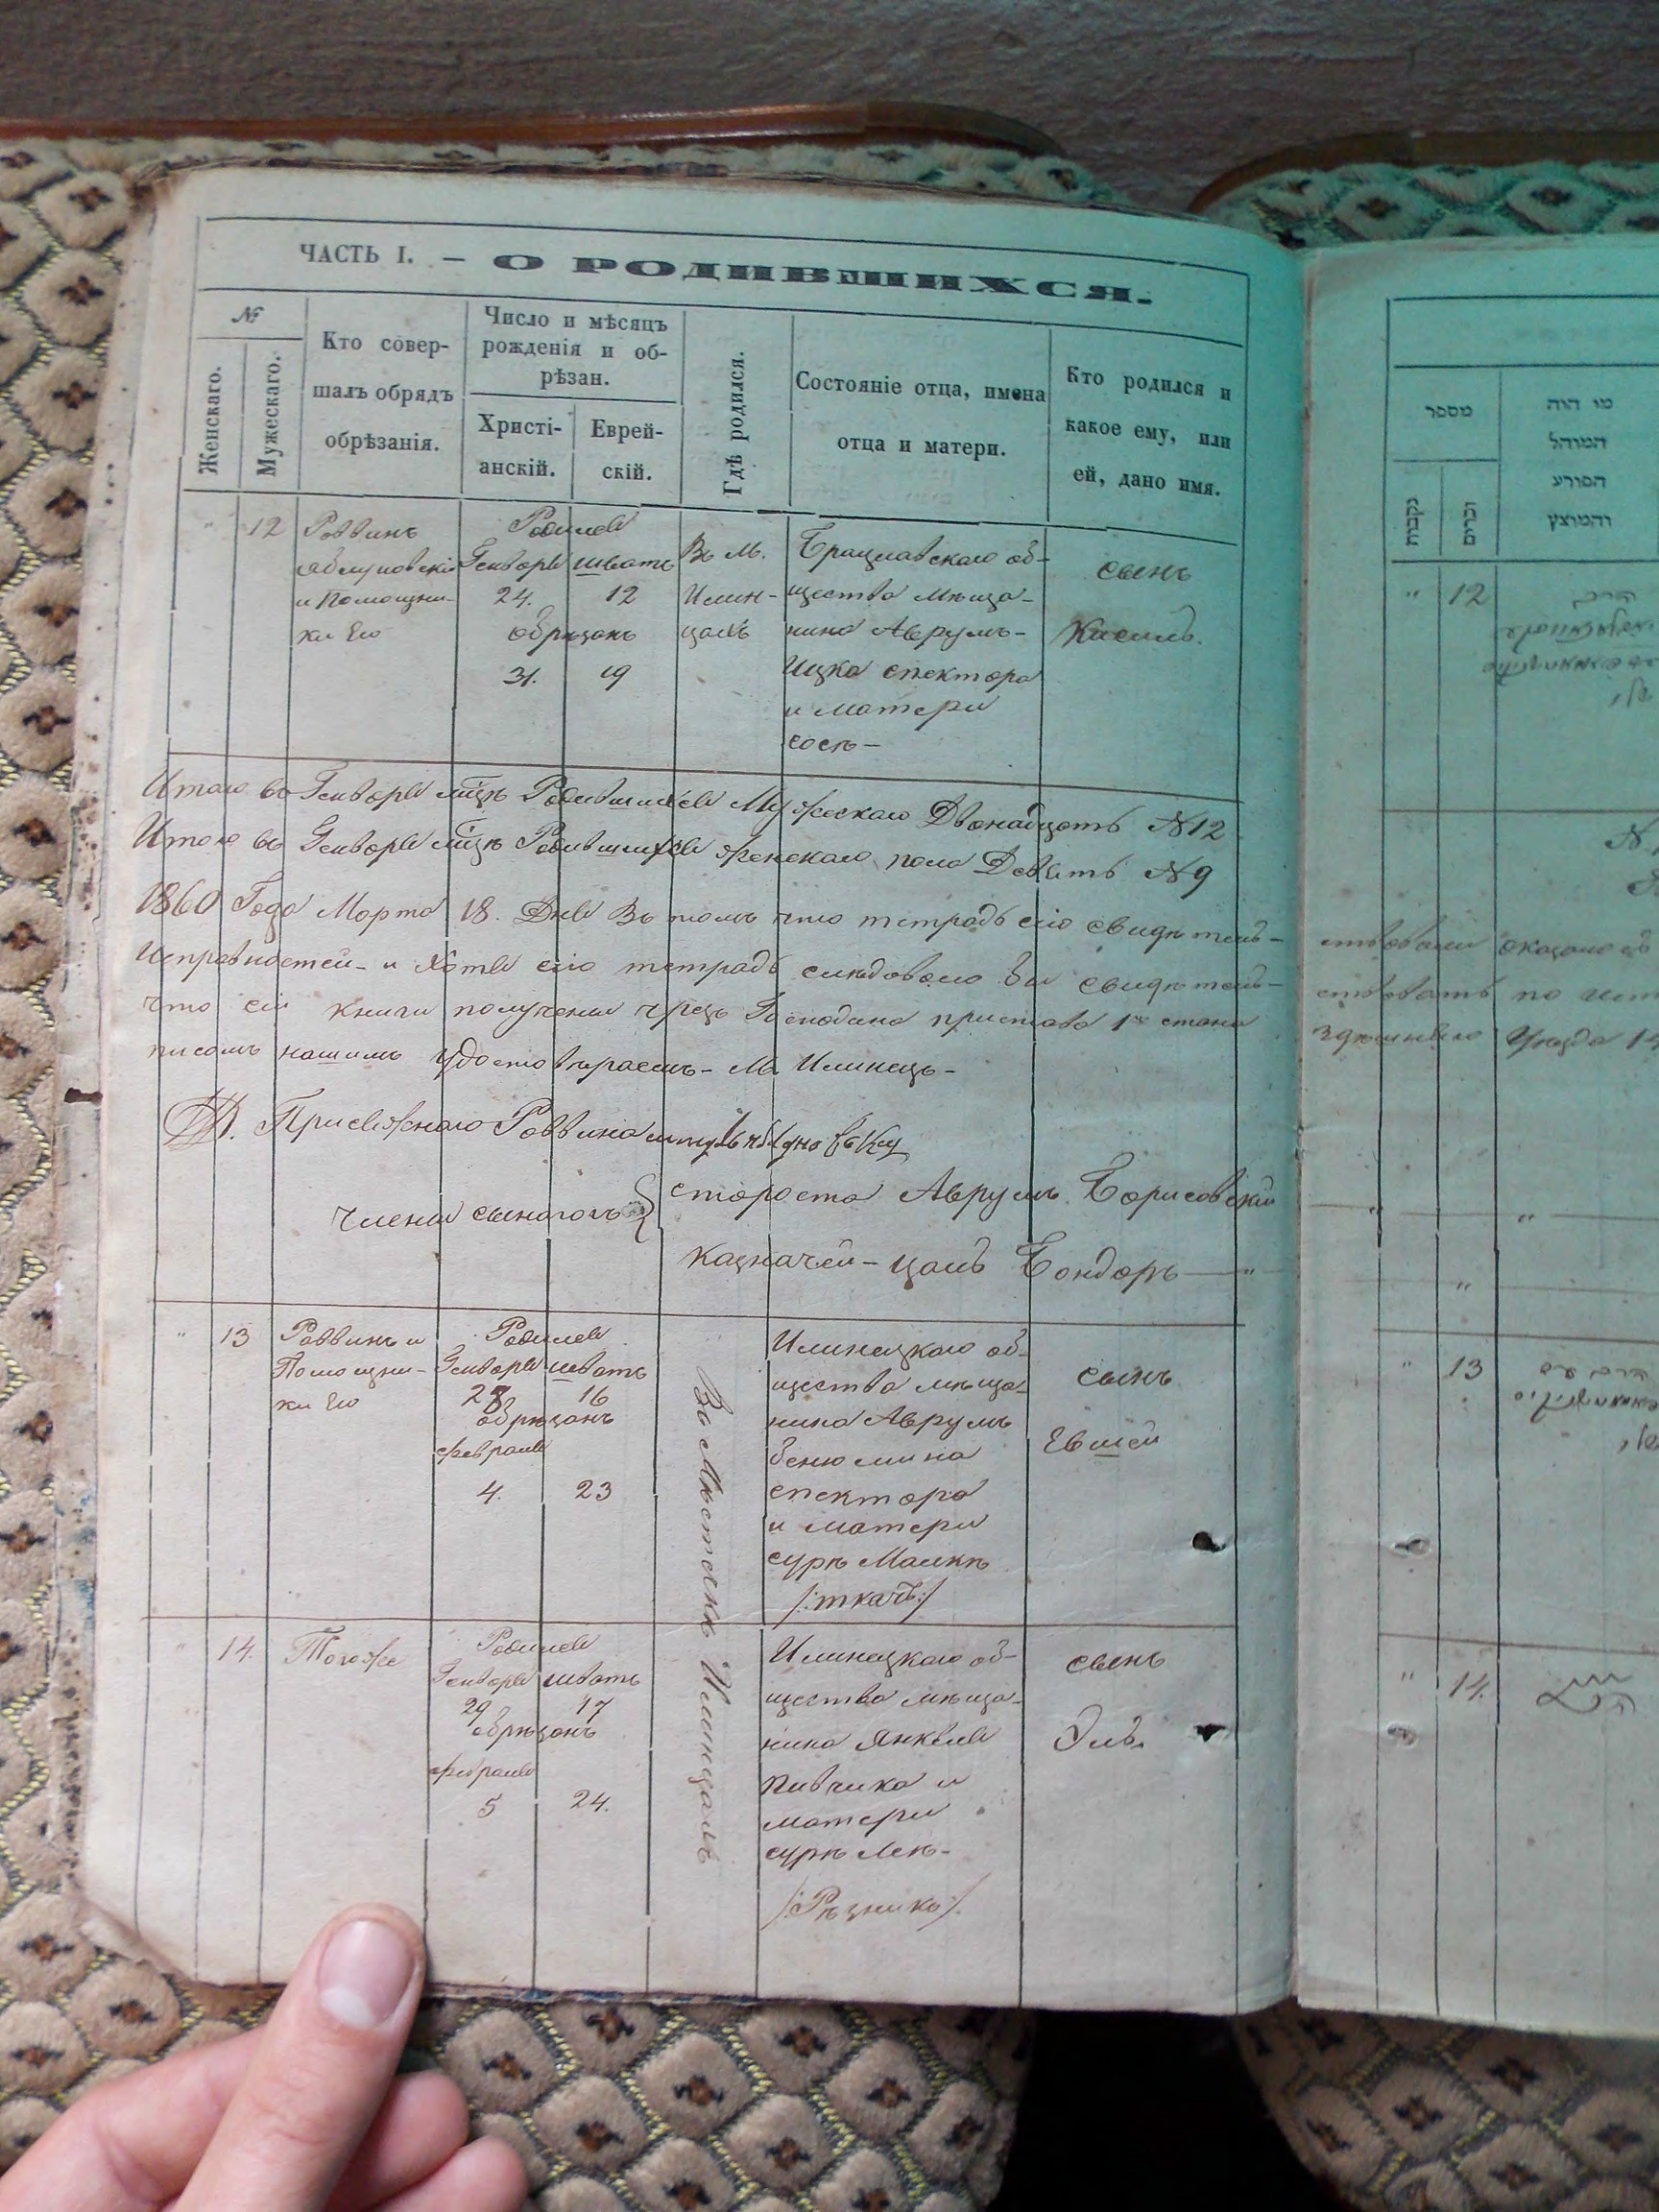 ЧАСТЬ I. — О РОДИВШИХСЯ.
№
Женскаго.
Мужескаго.
Кто совер-
шалъ обрядъ
обрѣзанія.
Число и мѣсяцъ
рожденія и об-
рѣзан.
Христі-
анскій.
Еврей-
скій.
Гдѣ родился.
Состояніе отца, имена
отца и матери.
Кто родился и
какое ему, или
ей, дано имя.
" 12
Раввинъ
и Помощни-
ки Его
Родился
Генваря Шватъ
24. 12
обрѣзанъ
31. 19
Въ М.
Илин-
цахъ
Брацлавскаго об-
щества мѣща-
нина Аврумъ-
Ицка спектора
и матери
сосѣ-
сынъ
Касиль.
Итого въ Генваря мцѣ Родившихся Мужескаго Двѣнадцать №12
Итого въ Генваря мцѣ Родившихся женскаго пола Девять №9
1860 Года Марта 18. Дня Въ томъ что тетрадь сію свидѣтель-
Исправностей- и Хотя сію тетрадь слѣдовало бы свидѣтель-
что сіи книги получены чрезъ Господина пристава 1го стана
писомъ нашимъ удостовѣряемъ- М. Илинецъ-
Присяжнаго Раввина
члены сынагогъ
староста Аврумъ Борисовскій
казначей- цаль Бондарь — "
" 13
Раввинъ и
Помощни-
ки Его
Родился
Генваря шватъ
28 16
обрѣзанъ
февраля
4. 23
Въ Мѣстечкѣ Илинцахъ
Илинецкаго об-
щества мѣща-
нина Аврумъ
бенюмина
спектора
и матери
сурѣ Малкѣ
/:ткачъ:/
сынъ
Евшей
" 14.
Тогоже
Родился
Генваря шватъ
29 17
обрѣзанъ
февраля
5 24.
Илинецкаго об-
щества мѣща-
нина Янкеля
Пивчика и
матери
сурѣ Леѣ-
/:Рѣзникъ:/
сынъ
Эль.
מספר
נקבות
זכרים
מי היה
המוהל
הפורע
והמוצץ
" 12
ствовали оказано въ
ствовать по
здѣшняго Уѣзда
" 13
" 14.